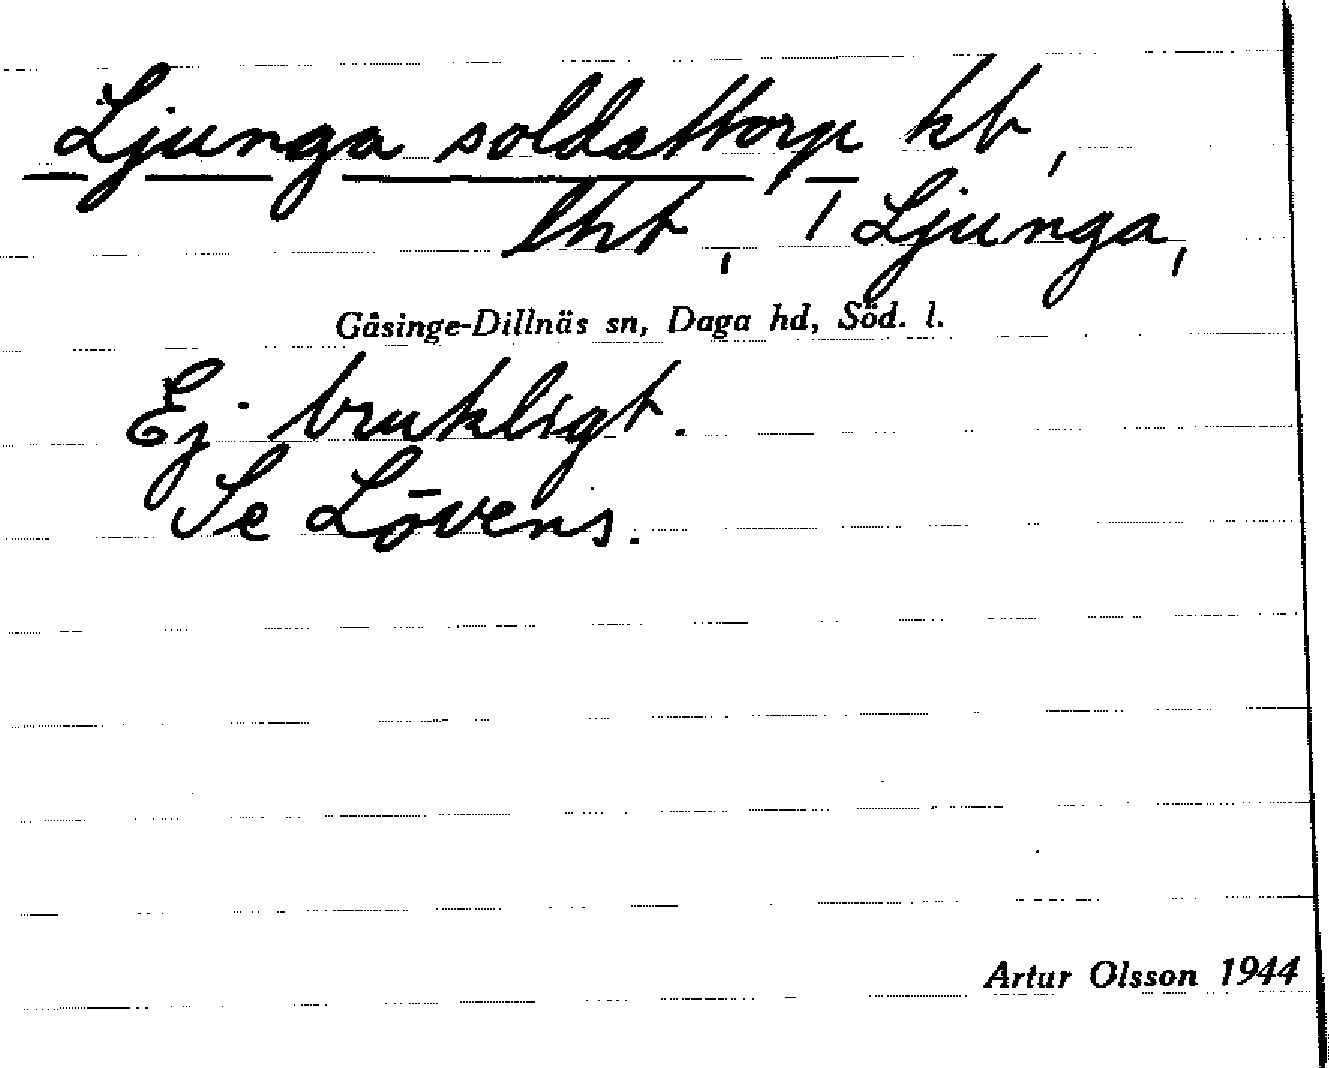 Ljunga soldattorp kb,
lht, 1 Ljunga,
Gåsinge-Dillnäs sn, Daga hd, Söd. l.
Ej brukligt.
Se Lövens.
Artur Olsson 1944